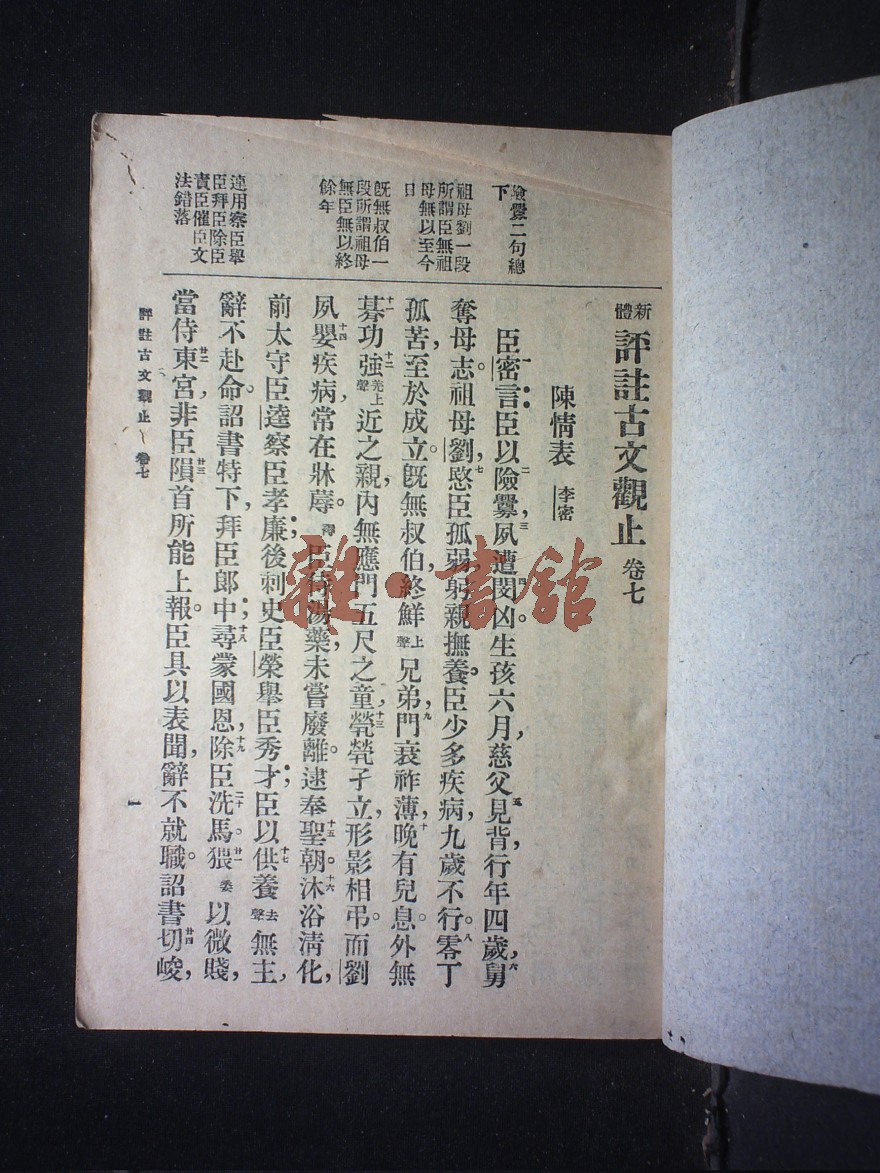 新體評註古文觀止 卷七
陳情表 李密
臣密言臣以險釁夙遭閔凶。生孩六月慈父見背行年四歲舅
奪母志。祖母劉愍臣孤弱躬親撫養。臣少多疾病九歲不行零丁
孤苦至於成立。既無叔伯終鮮上聲兄弟門衰祚薄晚有兒息。外無
朞功強羌上聲近之親內無應門五尺之童煢煢孑立形影相弔。而劉
夙嬰疾病常在牀蓐。臣侍湯藥未嘗廢離。逮奉聖朝。沐浴清化
前太守臣逵察臣孝廉後刺史臣榮舉臣秀才臣以供養去聲無主
辭不赴命。詔書特下拜臣郎中尋蒙國恩除臣洗馬。猥委以微賤
當侍東宮非臣隕首所能上報。臣具以表聞辭不就職。詔書切峻
險釁二句總
下
祖母劉一段
所謂臣無祖
母無以至今
日
既無叔伯一
段所謂祖母
無臣無以終
餘年
連用察臣舉
臣拜臣除臣
責臣催臣文
法錯落
評註古文觀止 卷七
一
雜·書館